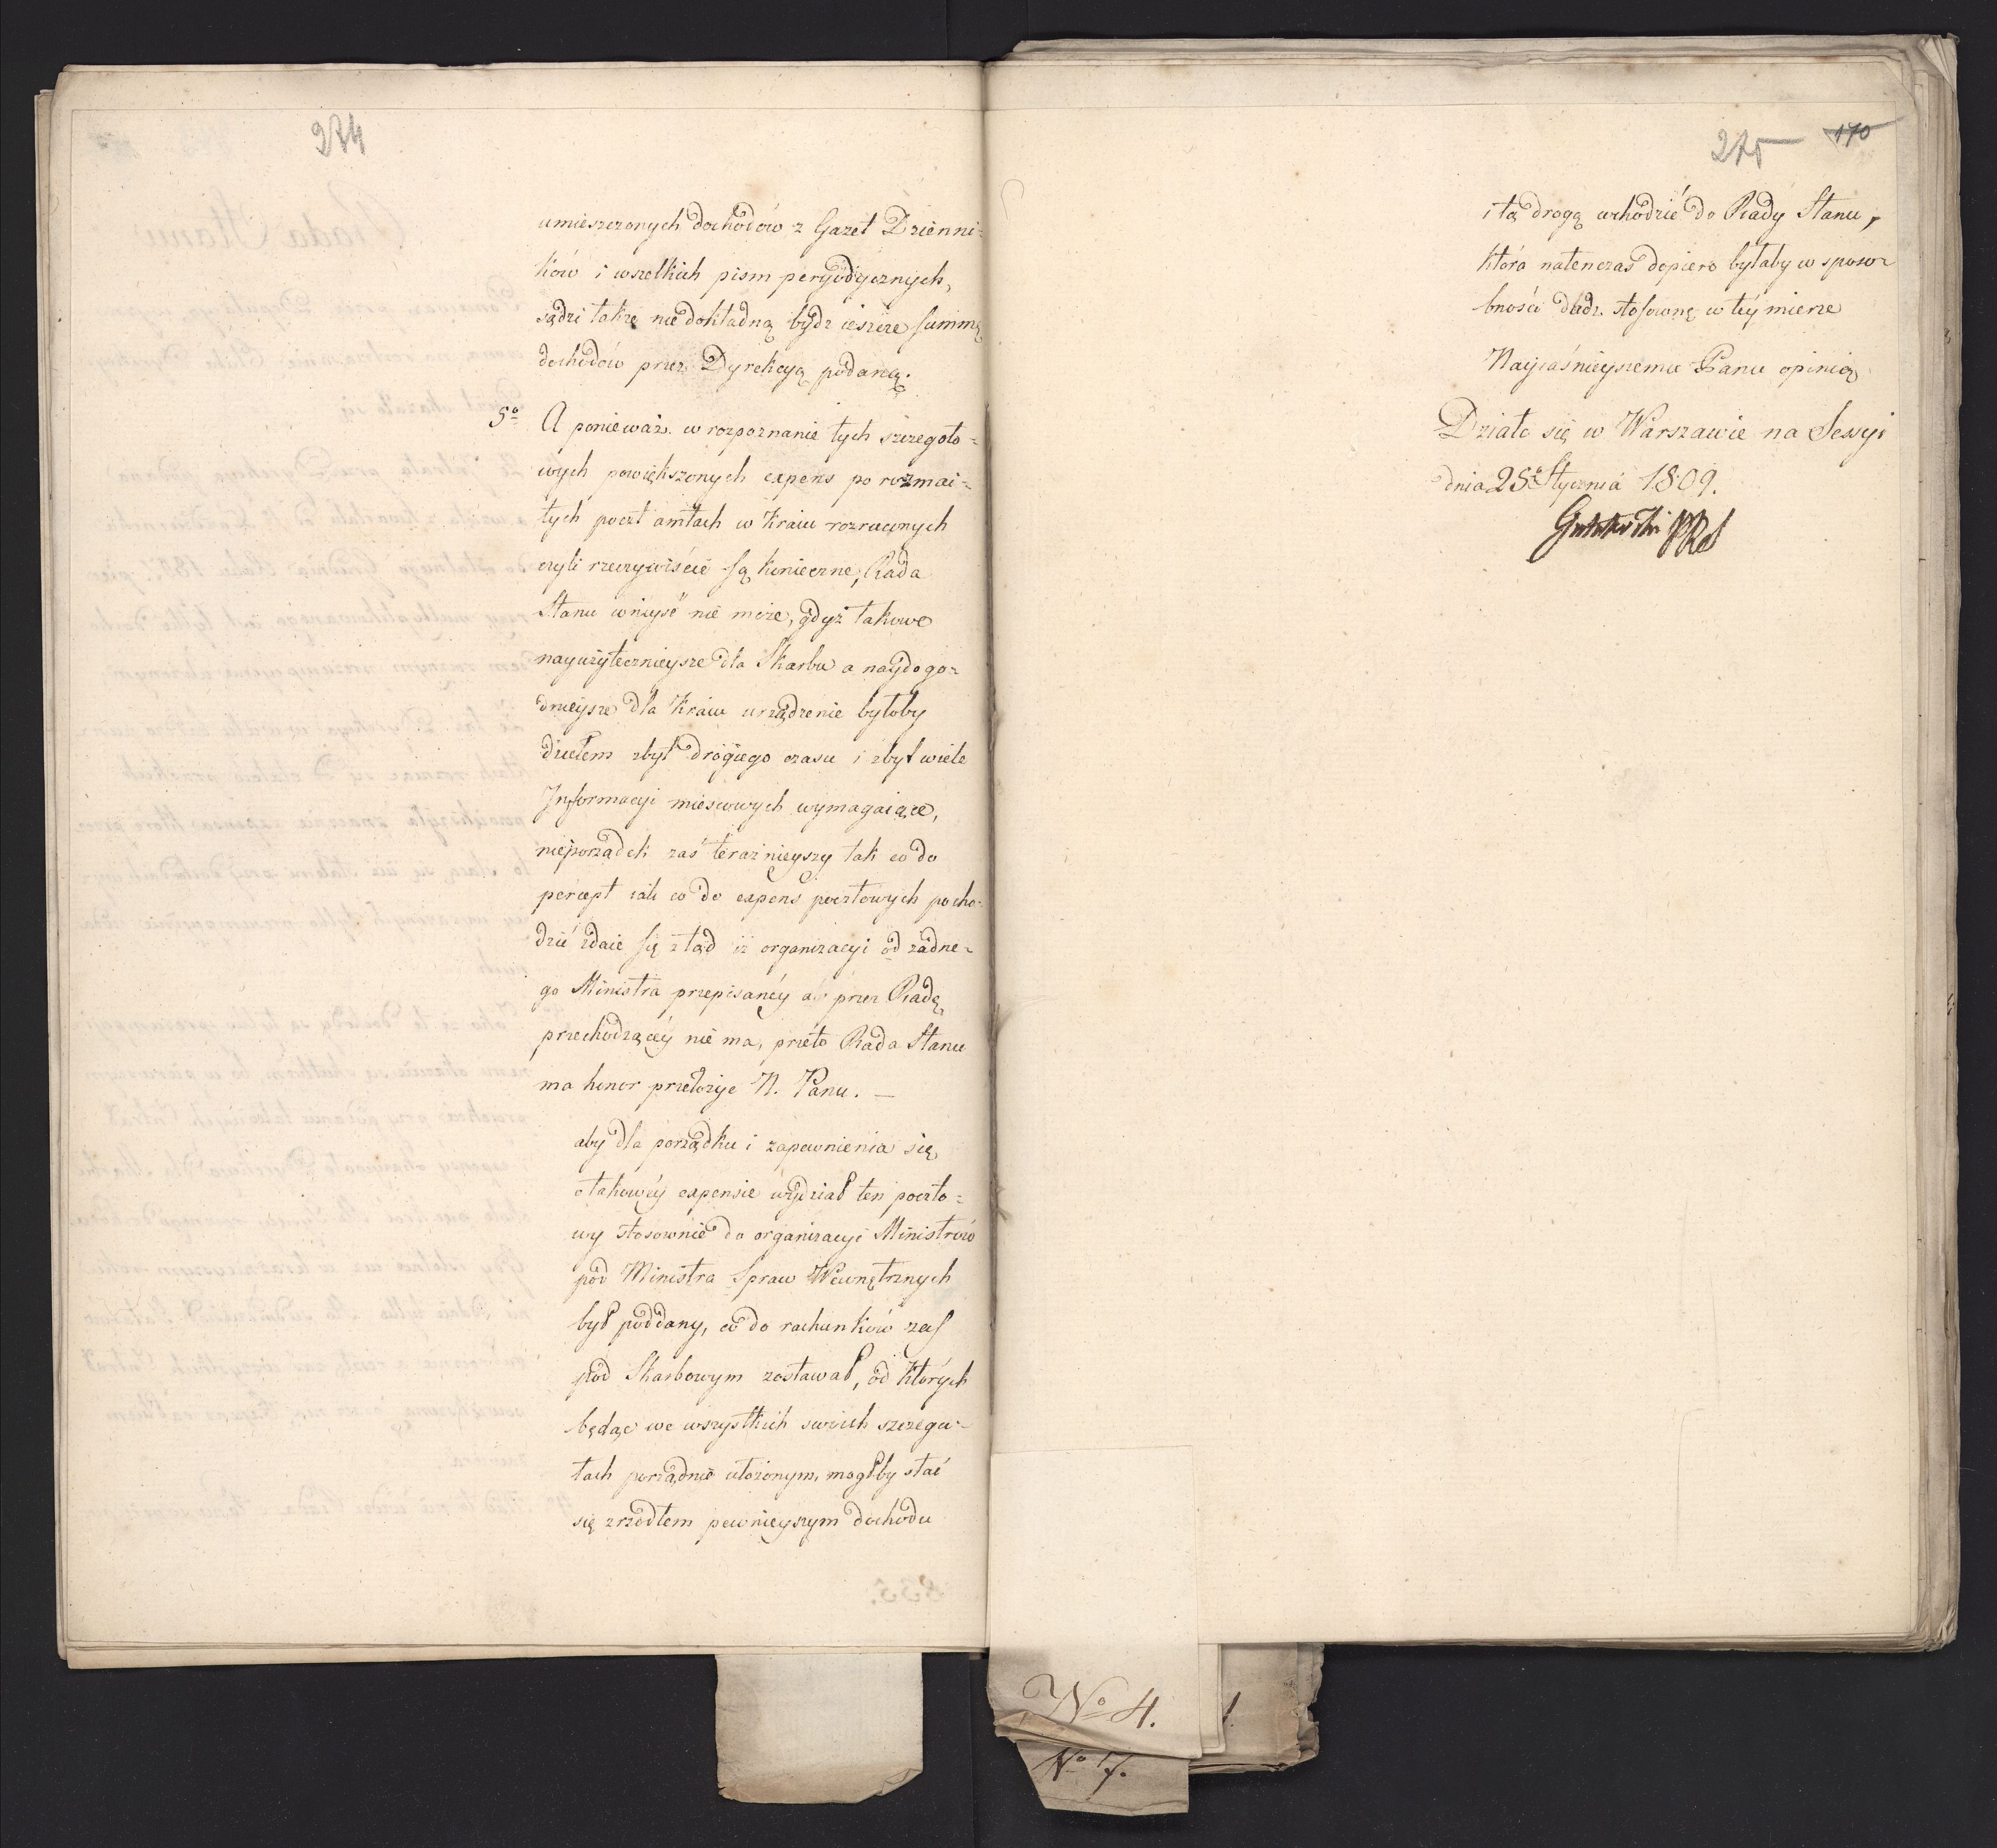 274
umieszczonych dochodów z Gazet Dzienni=
ków i wszelkich pism peryodycznych,
sądzi także niedokładną bydz ieszcze summę
dochodów przez Dyrekcyą podaną.
5o A ponieważ w rozpoznanie tych szczegoło=
wych powiększonych expens po rozmai=
tych poczt amtach w Kraiu rozrucznych
czyli rzeczywiście są konieczne, Rada
Stanu wniyść nie może, gdyż takowe
nayużytecznieysze dla Skarbu a naydogo=
dnieysze dla Kraiu urządzenie byłoby
dziełem zbyt drogiego czasu i zbyt wiele
Informacyi mieyscowych wymagaiące,
nieporządek zaś teraźnieyszy tak co do
percept iak co do expens pocztowych pocho=
dzić zdaie się ztąd iż organizacyi od żadne=
go Ministra przepisanéy a przez Radę
przechodzącéy nie ma, przeto Rada Stanu
ma honor przełożyć N. Panu. —
aby dla porządku i zapewnienia się
o takowéy expensie wydział ten poczto=
wy stosownie do organizacyi Ministrów
pod Ministra Spraw Wewnętrznych
był poddany, co do rachunków zaś
pod Skarbowym zostawał, od których
będąc we wszystkich swoich szczegu=
łach porządnie ułożonym, mógłby stać
się zrzodłem pewnieyszym dochodu
275 170
i tą drogą wchodzić do Rady Stanu,
która natenczas dopiero byłaby w sposo=
bności dadz stosowną w téy mierze
Nayiaśnieyszemu Panu opinią
Działo się w Warszawie na Sessyi
dnia 25o Stycznia 1809.
Gutakowski PRS
No 4.
No 7.